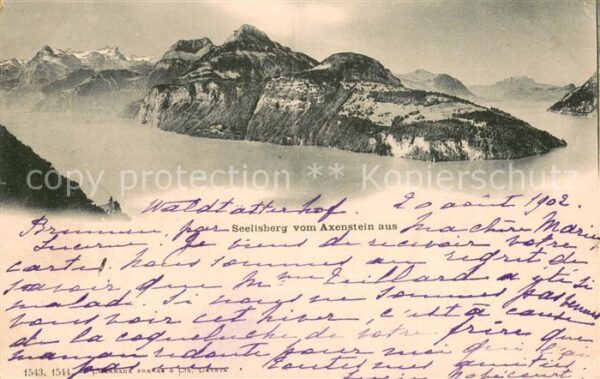 Waldstätterhof. 20 août 1902.
Seelisberg vom Axenstein aus
Brunnen, par Ma chère Marie
Lucerne. Je viens de recevoir votre
carte, nous sommes au regret de
savoir que Mme a été si
malade. Si nous ne sommes pas venus
vous voir cet hiver, c'est à cause
de la coqueluche de votre frère que
maman redoute pour moi qui l'ai
pas
Toutes mes amitiés
copy protection ** Copyschutz
1543. 1544